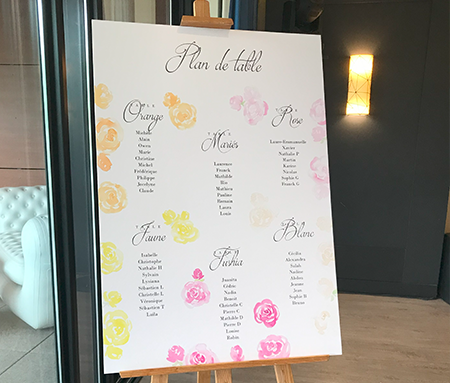 Plan de table
TABLE
Orange
Mathilde
Alain
Owen
Marie
Christine
Michel
Frédérique
Philippe
Jocelyne
Claude
TABLE
Mariés
Laurence
Franck
Mathilde
Mia
Mathieu
Pauline
Romain
Laura
Louis
TABLE
Rose
Laure-Emmanuelle
Xavier
Nathalie P
Martin
Karine
Nicolas
Sophie G
Franck G
TABLE
Jaune
Isabelle
Christophe
Nathalie H
Sylvain
Lysiana
Sébastien L
Christelle L
Virginie
Sébastien T
Laïla
TABLE
Fushia
Juanita
Cédric
Nadia
Benoit
Christelle C
Pierre C
Mathilde D
Pierre D
Louise
Robin
TABLE
Blanc
Cécilia
Alexandra
Salah
Nadine
Aloïse
Joanne
Jean
Sophie B